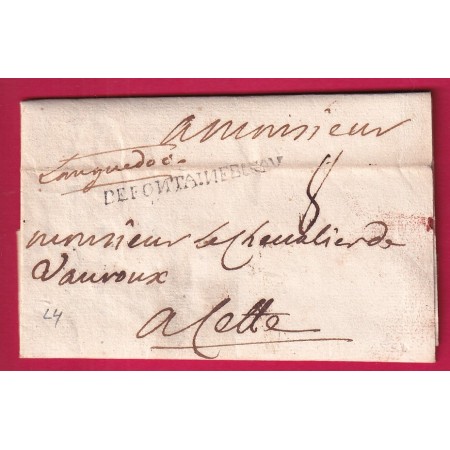 A Monsieur
Languedoc.
DEFONTAINEBLEAU
8
Monsieur le Chevalier de
Vauroux
A Cette
L4